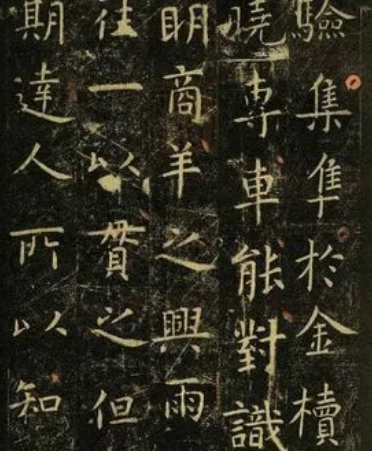 驗集隼於金櫝
曉專車能對識
明商羊之興雨
往一以貫之但
期達人所以知